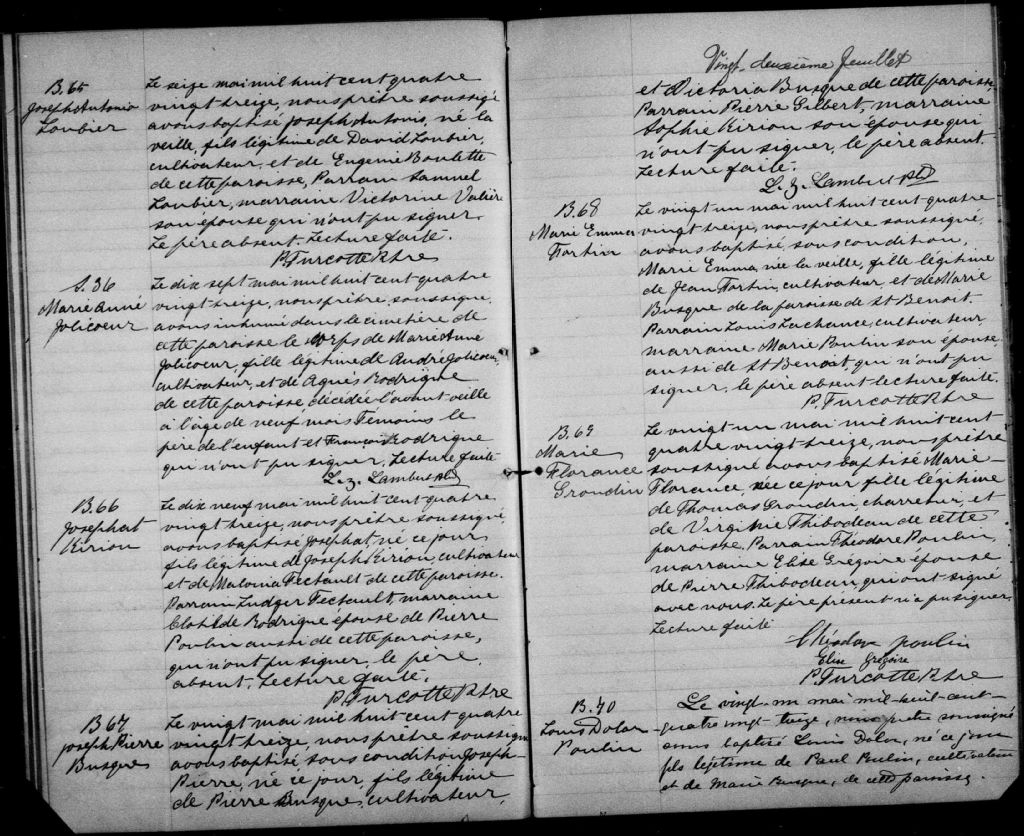 B. 65
Joseph Antonio
Loubier
Le seize mai mil huit cent quatre
vingt treize, nous prêtre soussigé
avons baptisé Joseph Antonio, né la
veille, fils légitime de David Loubier,
cultivateur, et de Eugenie Boulette
de cette paroisse, Parrain Samuel
Loubier, marraine Victorine Valière
son épouse qui n'ont pu signer.
Le père absent. Lecture faite.
P. Turcotte Ptre
S. 36
Marie Anne
Jolicoeur
Le dix sept mai mil huit cent quatre
vingt treize, nous prêtre, soussigné
avons inhumé dans le cimetière de
cette paroisse le corps de Marie Anne
Jolicoeur, fille légitime de André Jolicoeur,
cultivateur, et de Agnès Rodrigue
de cette paroisse décédée l'avant veille
à l'âge de neuf mois Témoins le
père de l'enfant et François Rodrigue
qui n'ont pu signer. Lecture faite
L. Z. Lambert Ptre
B. 66
Josephat
Kirion
Le dix neuf mai mil huit cent quatre
vingt treize, nous prêtre soussigné,
avons baptisé Josephat, né ce jour
fils légitime de Joseph Kirion, cultivateur
et de Malonia Fectault de cette paroisse.
Parrain Ludger Fectault, marraine
Clotilde Rodrigue épouse de Pierre
Poulin aussi de cette paroisse,
qui n'ont pu signer, le père
absent. Lecture faite.
P. Turcotte Ptre
B. 67
Joseph Pierre
Busque
Le vingt mai mil huit cent quatre
vingt treize, nous prêtre soussigné
avons baptisé sous condition Joseph-
Pierre, né ce jour, fils légitime
de Pierre Busque, cultivateur,
Vingt-deuxième feuillet
et Victoria Busque de cette paroisse,
Parrain Pierre Gilbert, marraine
Sophie Kirion son épouse qui
n'ont pu signer, le père absent.
Lecture faite.
L. Z. Lambert Ptre
B. 68
Marie Emma
Fortin
Le vingt un mai mil huit cent quatre
vingt treize, nous prêtre soussigné,
avons baptisé, sous condition,
Marie Emma, née la veille, fille légitime
de Jean Fortin, cultivateur, et de Marie
Busque de la paroisse de St Benoit.
Parrain Louis Lachance, cultivateur,
marraine Marie Poulin son épouse,
aussi de St Benoit, qui n'ont pu
signer, le père absent lecture faite.
P. Turcotte Ptre
B. 69
Marie
Florance
Groudin
Le vingt un mai mil huit cent
quatre vingt treize, nous prêtre
soussigné avons baptisé Marie-
Florance, née ce jour fille légitime
de Thomas Groudin, charretier, et
de Virginie Thibodeau de cette
paroisse, Parrain Théodore Poulin,
marraine Elise Grégoire épouse
de Pierre Thibodeau qui ont signé
avec nous. Le père présent n'a pu signer
Lecture faite
Théodore Poulin
Elise Grégoire
P. Turcotte Ptre
B. 70
Louis Dolor
Poulin
Le vingt-un mai mil-huit-cent-
quatre vingt-treize, nous prêtre soussigné
avons baptisé Louis Dolor, né ce jour
fils légitime de Paul Poulin, cultivateur
et de Marie Busque, de cette paroisse.